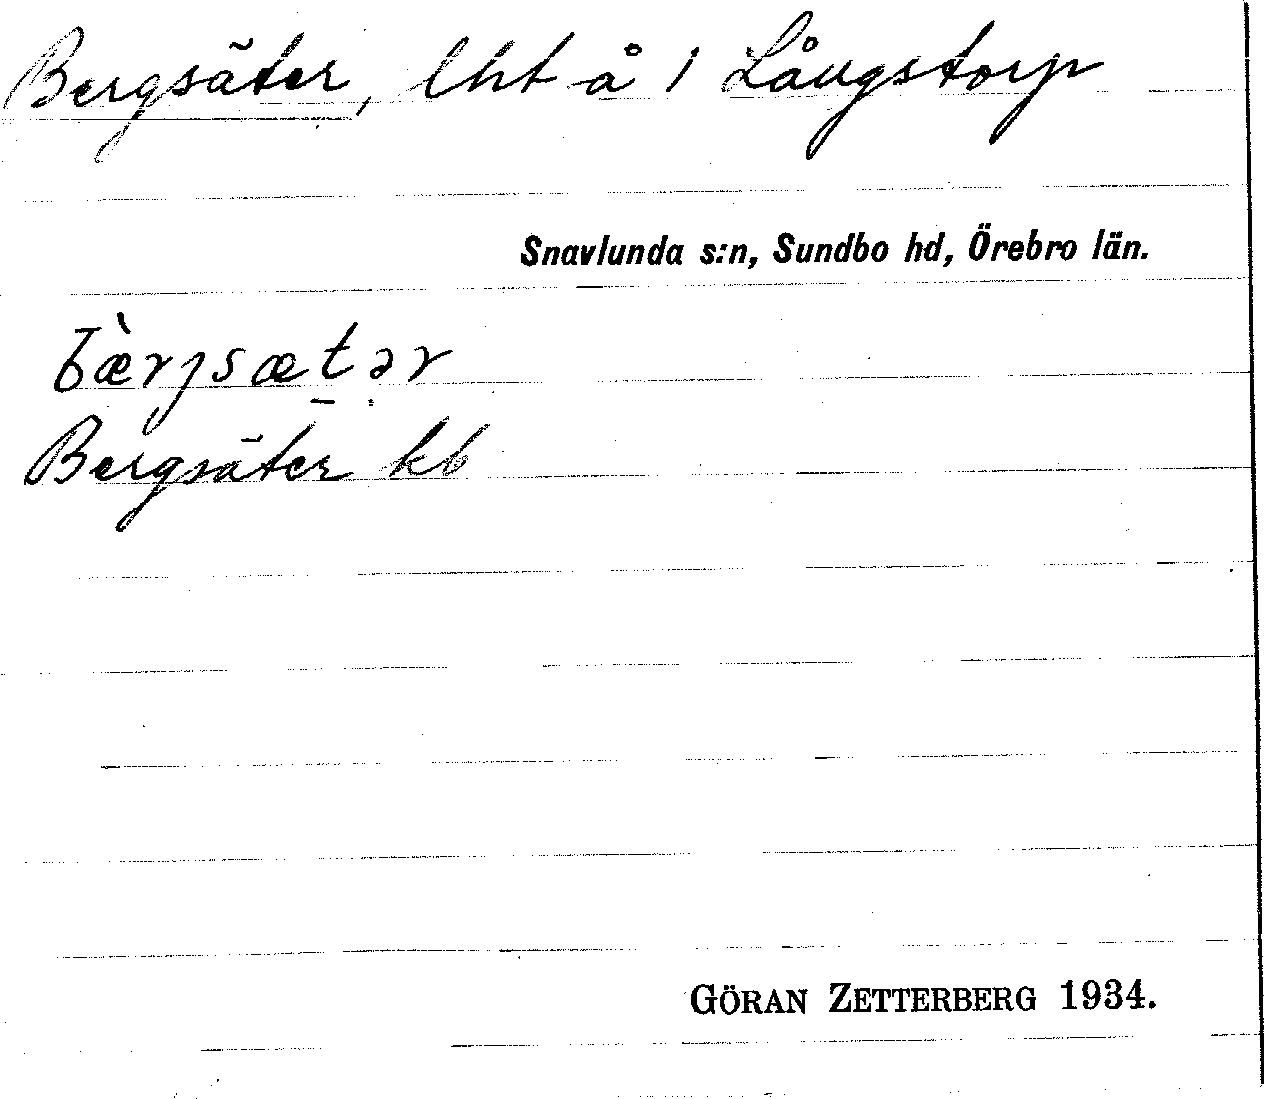 Bergsäter, lht å 1 Långstorp
Snavlunda s:n, Sundbo hd, Örebro län.
bæ̀rjsæt̠ər
Bergsäter kb
GÖRAN ZETTERBERG 1934.